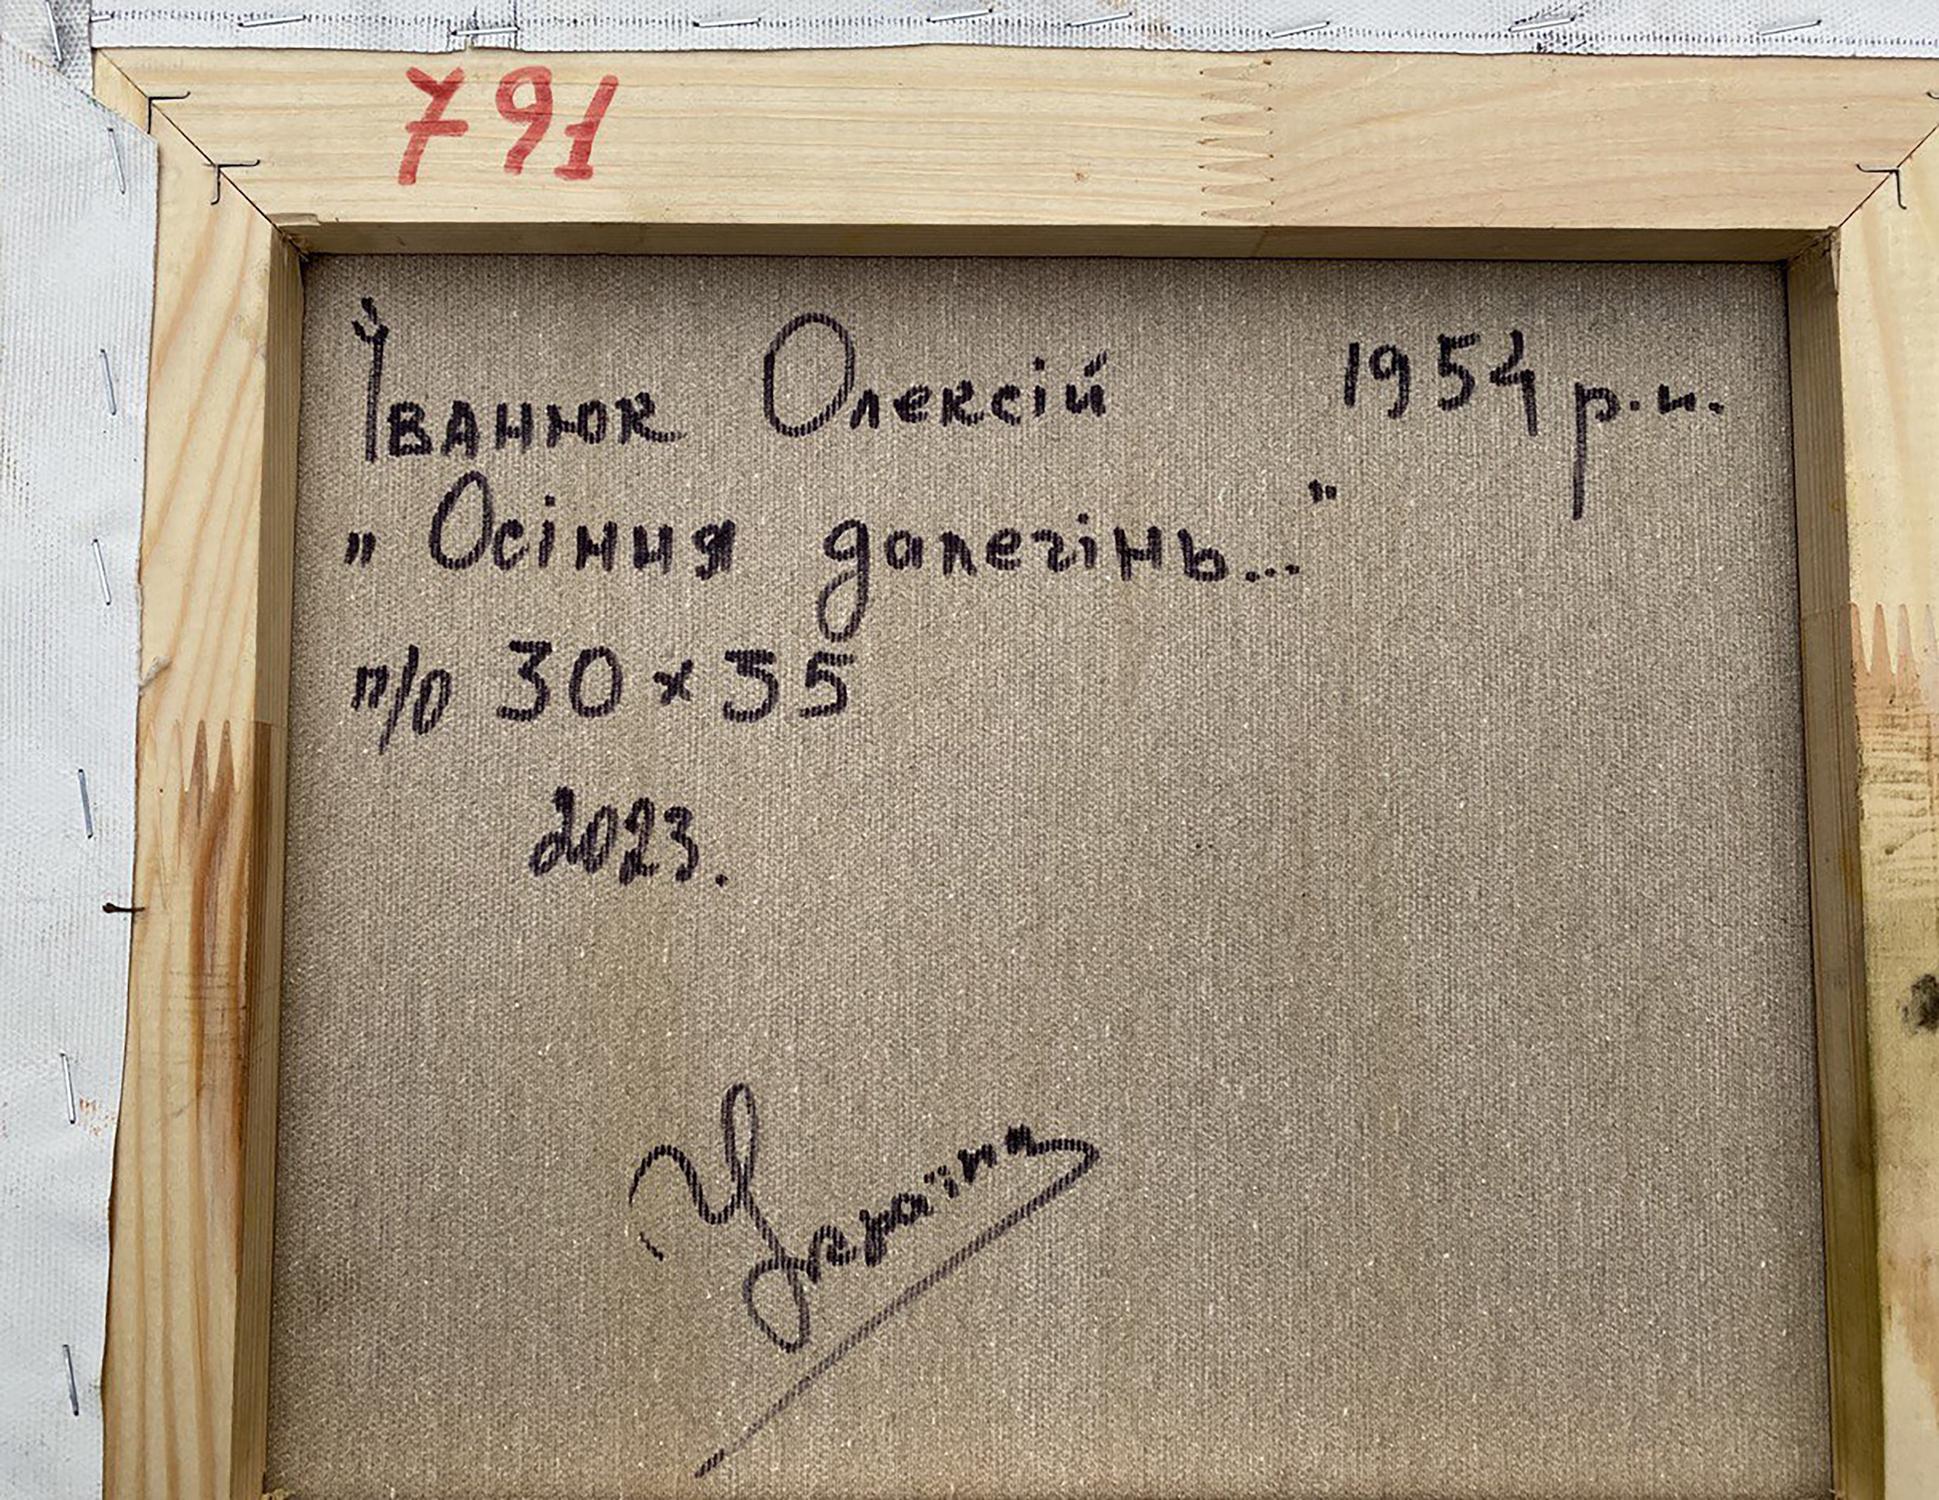 791
Іванюк Олексій 1954 р.н.
„Осіння далечінь..."
п/о 30×35
2023.
Україна